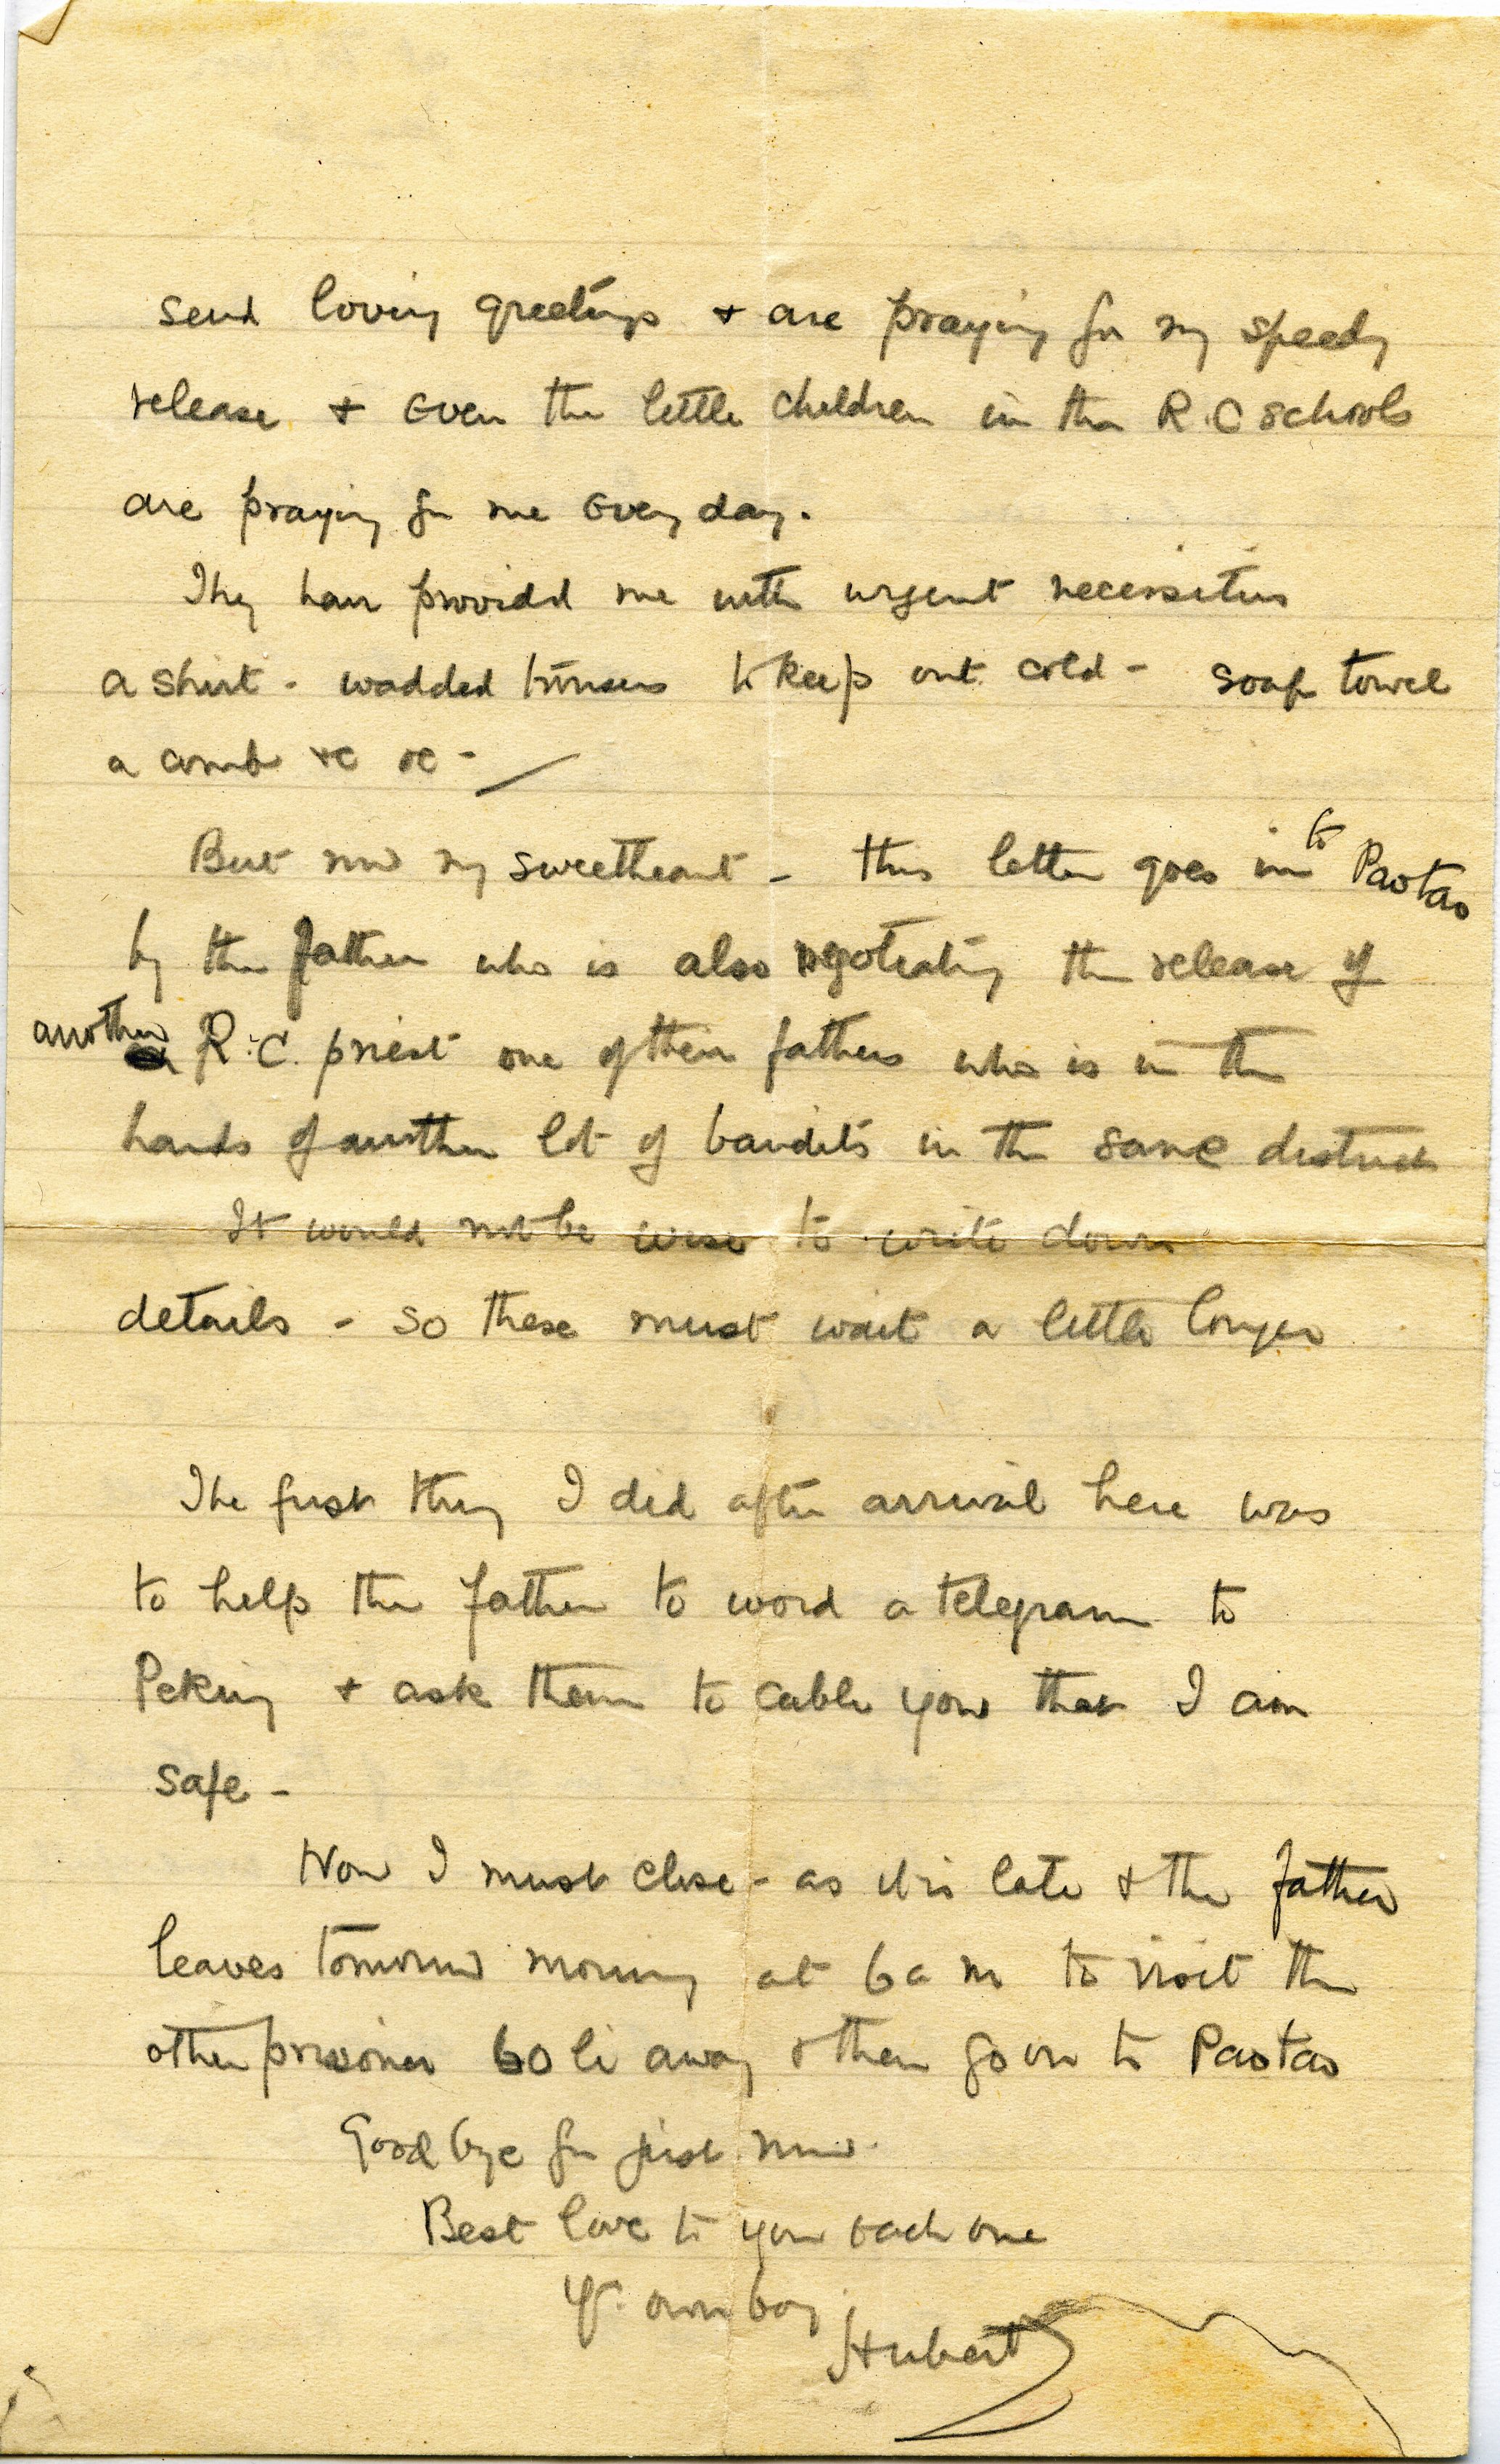 send loving greetings & are praying for my speedy
release & even the little children in the R.C schools
are praying for me every day.
They have provided me with urgent necessities
a shirt - wadded trousers to keep out cold - soap towel
a comb &c &c -
But now my sweetheart - this letter goes into Paotao
by the father who is also negotiating the release of
another R.C. priest one of their fathers who is in the
hands of another lot of bandits in the same district
It would not be wise to write down
details - so these must wait a little longer
The first thing I did after arrival here was
to help the father to word a telegram to
Peking & ask them to cable you that I am
safe -
Now I must close - as it is late & the father
leaves tomorrow morning at 6 a m to visit the
other prisoner 60 li away & then go on to Paotao
Good bye for just now.
Best love to you each one
Yr. own boy
Hubert